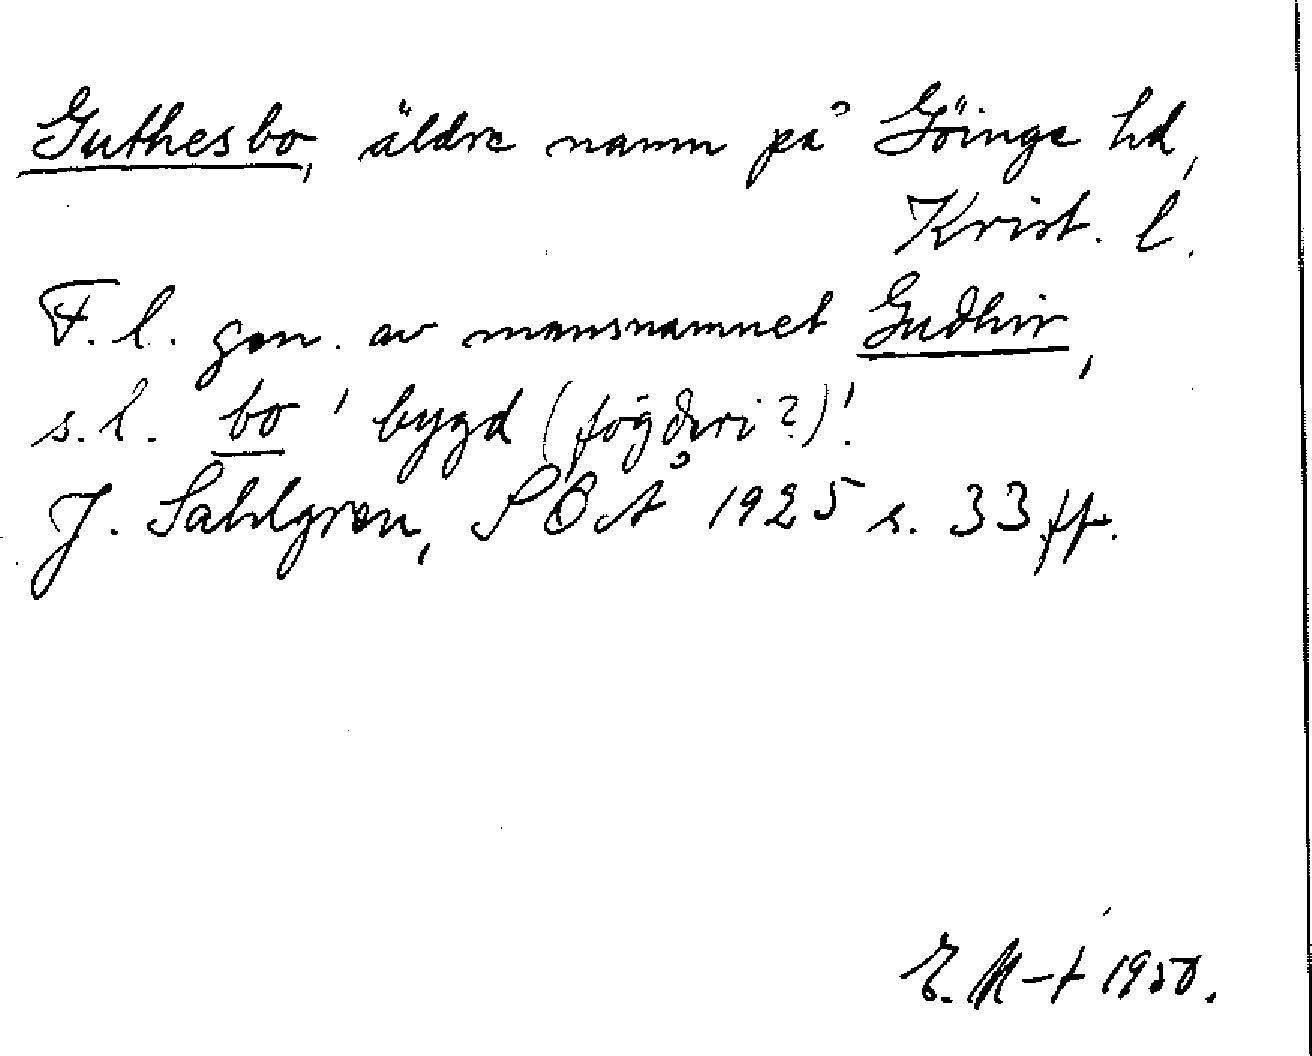 Guthesbo, äldre namn på Göinge hd,
Krist. l.
F.l. gen. av mansnamnet Gudhir,
s.l. bo 'bygd (fögderi?)'.
J. Sahlgren, SÖÅ 1925 s. 33 ff.
E. M-t 1950.